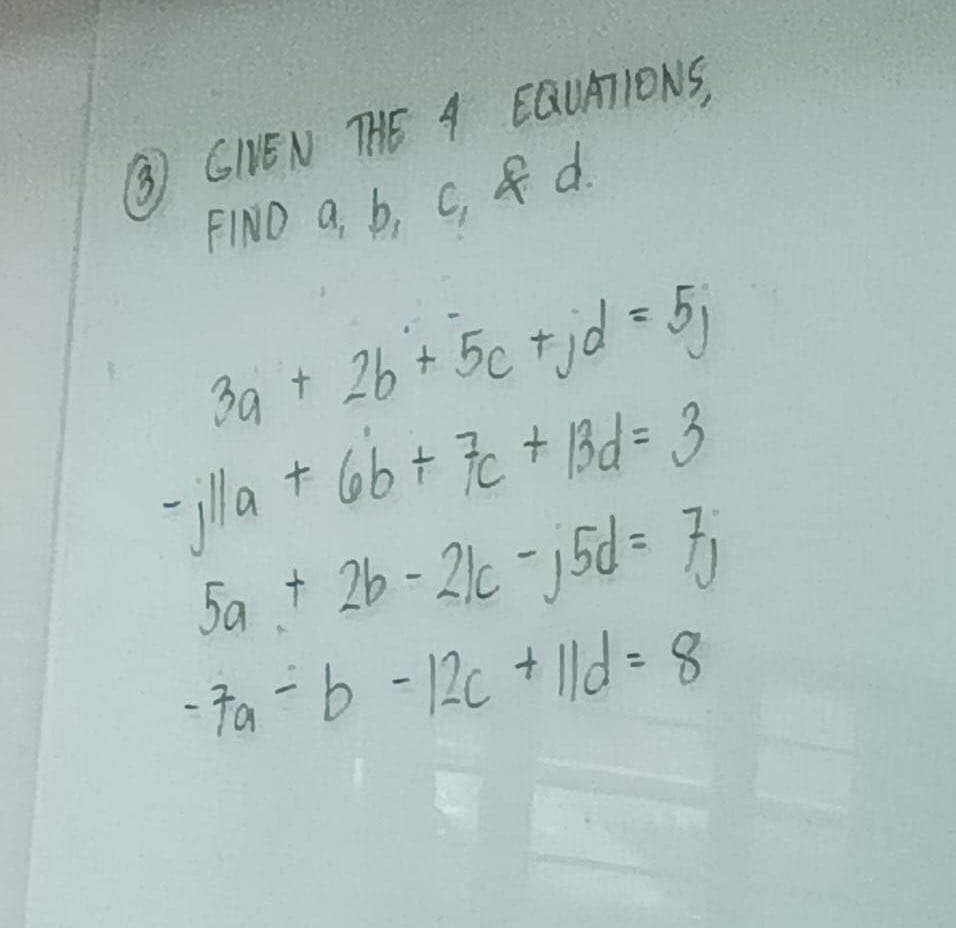 ③ GIVEN THE 4 EQUATIONS,
FIND a, b, c, & d.
3a + 2b + 5c + jd = 5j
-j11a + 6b + 7c + 13d = 3
5a + 2b - 21c - j5d = 7j
-7a - b - 12c + 11d = 8